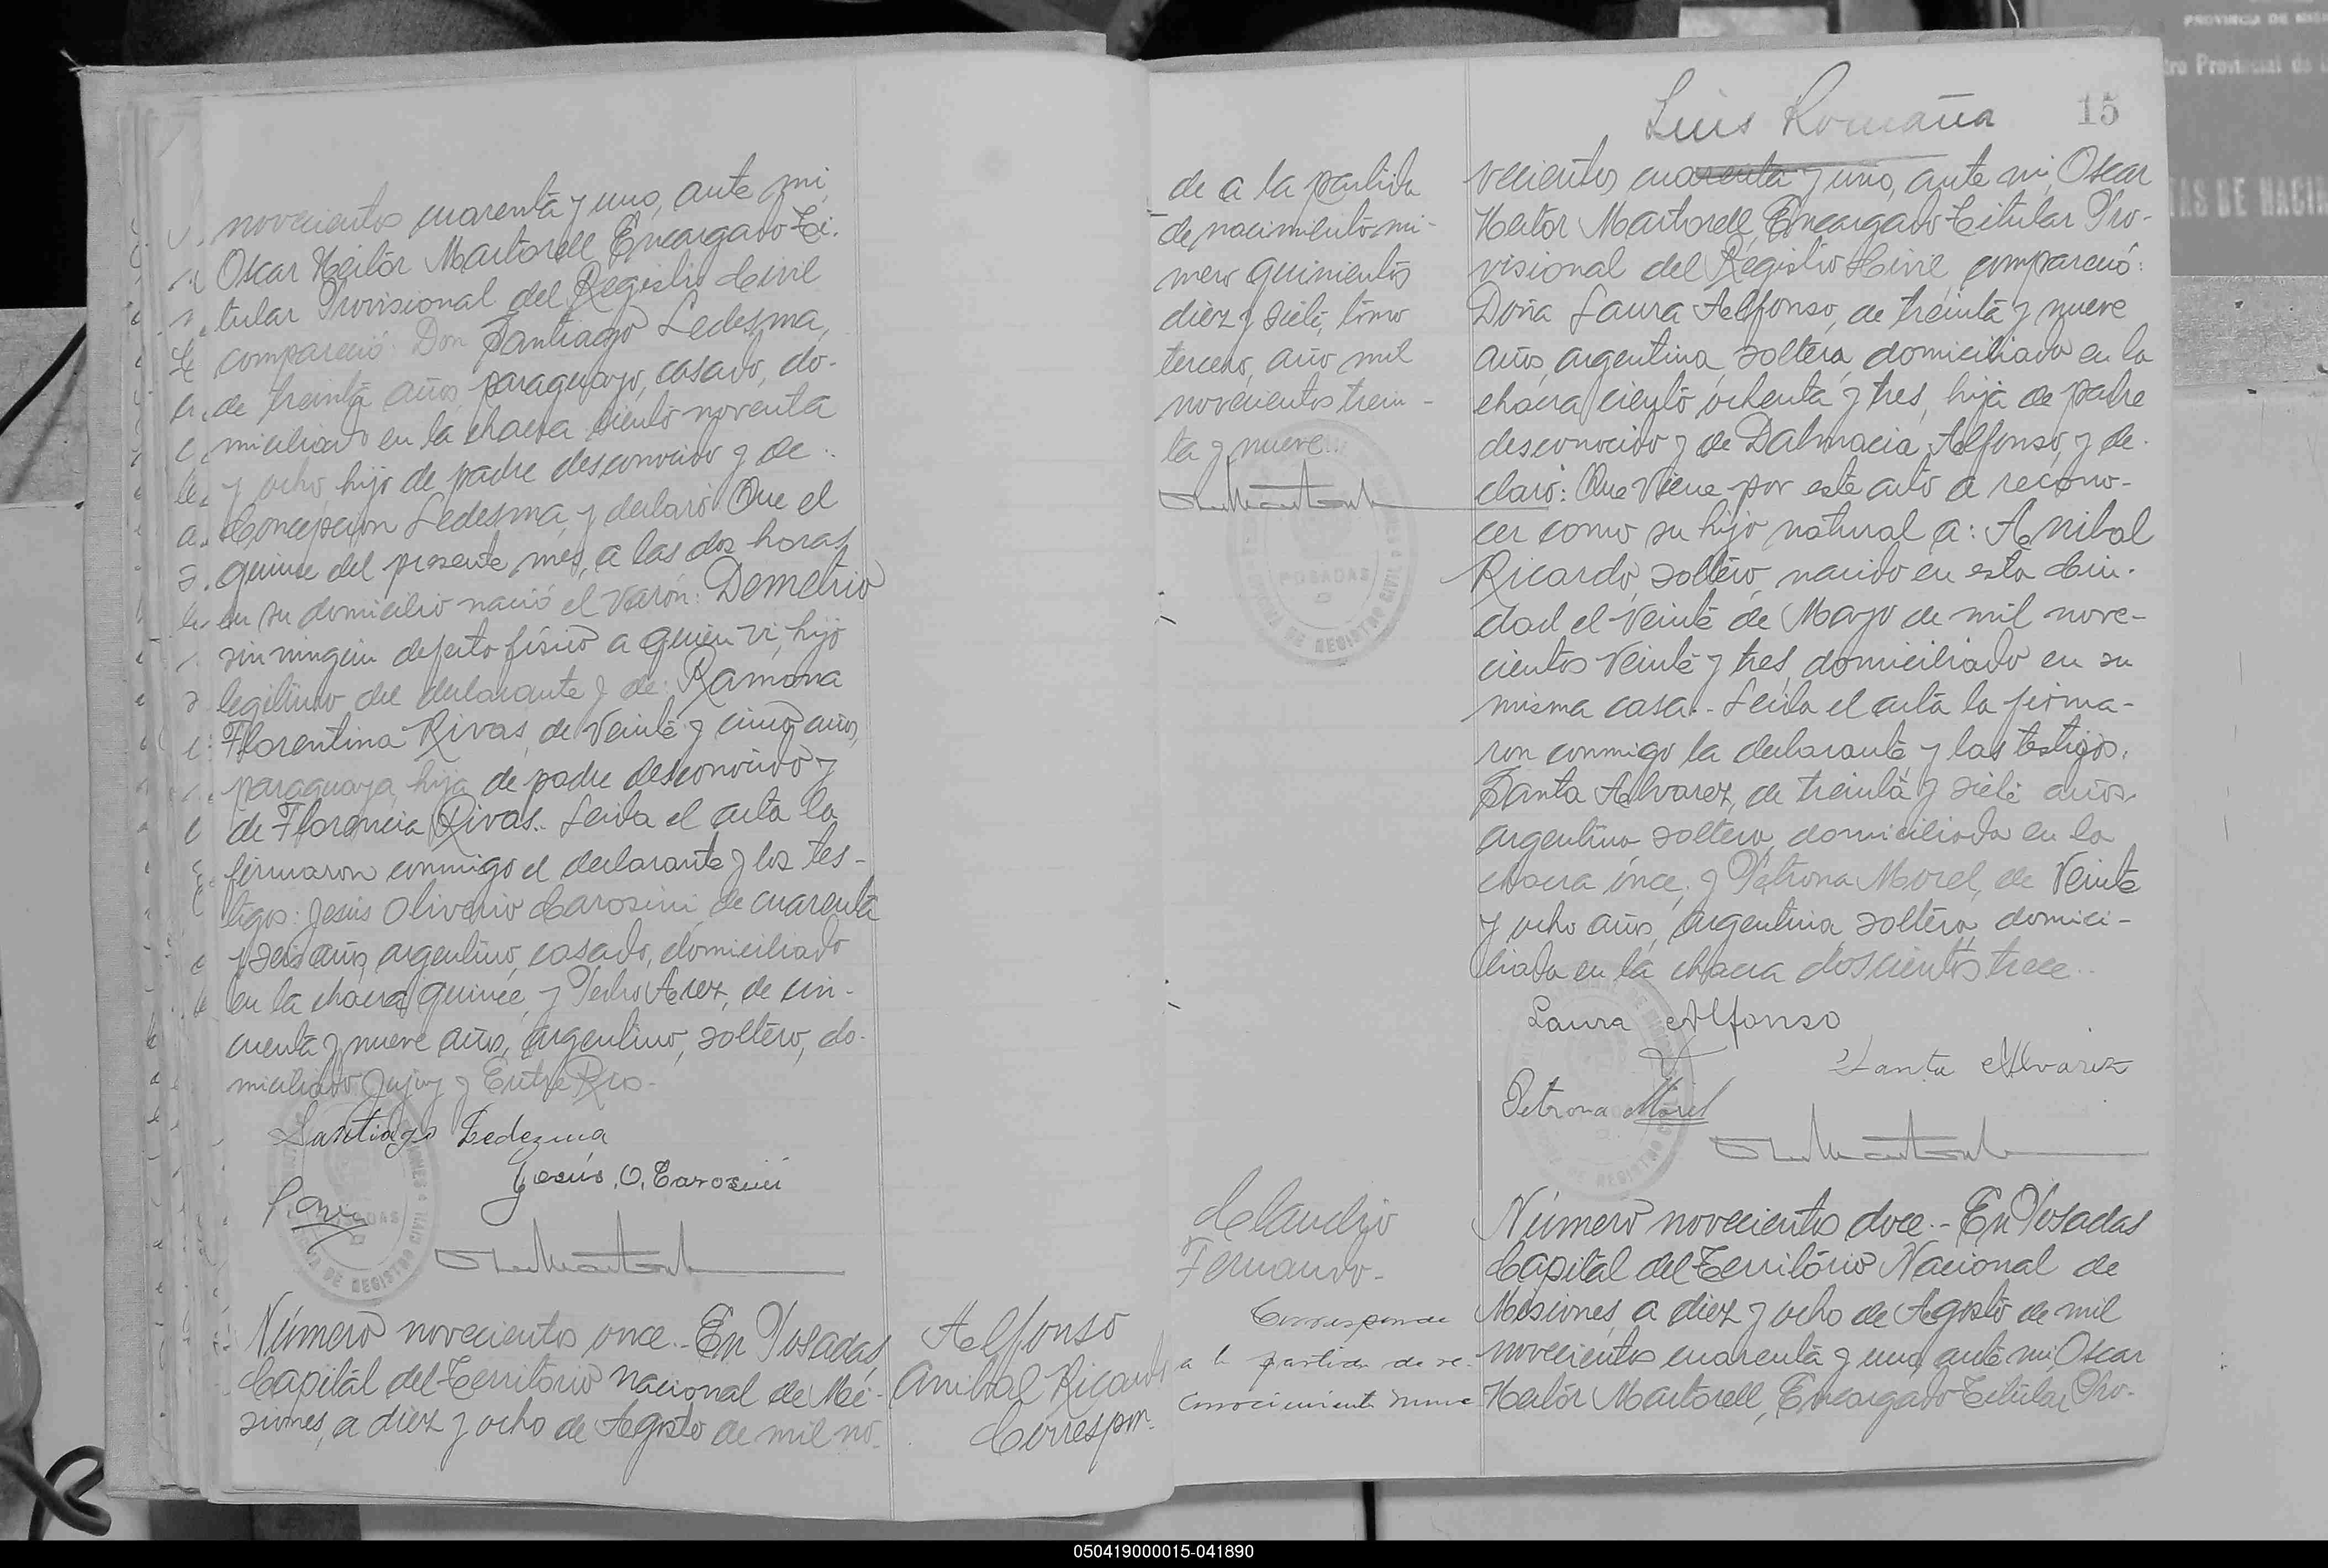 novecientos cuarenta y uno, ante mi,
Oscar Héctor Martorell Encargado Ti-
tular Provisional del Registro Civil
compareció: Don Santiago Ledesma,
de treinta años, paraguayo, casado, do-
miciliado en la chacra ciento noventa
y ocho, hijo de padre desconocido y de
Concepcion Ledesma, y declaró: Que el
quince del presente mes, a las dos horas
en su domicilio nació el varón: Demetrio
sin ningún defecto físico a quien vi, hijo
legítimo del declarante y de: Ramona
Florentina Rivas, de veinte y cinco años,
paraguaya, hija de padre desconocido y
de Florencia Rivas.. Leida el acta la
firmaron conmigo el declarante y los tes-
tigos: Jesús Oliverio Carosini, de cuarenta
y seis años, argentino, casado, domiciliado
en la chacra quince, y Pedro Arez, de cin-
cuenta y nueve años, argentino, soltero, do-
miciliado Jujuy y Entre Rios.-
Santiago Ledezma
Jesús. O. Carosini
Número novecientos once.- En Posadas,
Capital del Territorio Nacional de Mi-
siones, a diez y ocho de Agosto de mil no-
Alfonso
Anibal Ricardo
Correspon-
Luis Romaña
15
de a la partida
de nacimiento nú-
mero quinientos
diez y siete, tomo
tercero, año mil
novecientos trein-
ta y nueve..
POSADAS
DE REGISTRO CIVIL
vecientos cuarenta y uno, ante mi, Oscar
Héctor Martorell, Encargado Titular Pro-
visional del Registro Civil, compareció:
Doña Laura Alfonso, de treinta y nueve
años, argentina, soltera, domiciliada en la
chacra ciento ochenta y tres, hija de padre
desconocido y de Dalmacia Alfonso, y de-
claró: Que viene por este acto a recono-
cer como su hijo natural a: Anibal
Ricardo, soltero, nacido en esta Ciu-
dad el veinte de Mayo de mil nove-
cientos veinte y tres, domiciliado en su
misma casa.- Leida el acta la firma-
ron conmigo la declarante y las testigos:
Santa Alvarez, de treinta y siete años,
argentina, soltera, domiciliada en la
chacra once, y Petrona Morel, de veinte
y ocho años, argentina soltera, domici-
liada en la chacra doscientos trece..
Laura Alfonso
Santa Alvarez
Petrona Morel
Claudio
Fernando-
Corresponde
a la partida de re-
conocimiento
Número novecientos doce.- En Posadas
Capital del Territorio Nacional de
Misiones, a diez y ocho de Agosto de mil
novecientos cuarenta y uno, ante mi, Oscar
Héctor Martorell, Encargado Titular Pro-
050419000015-041890